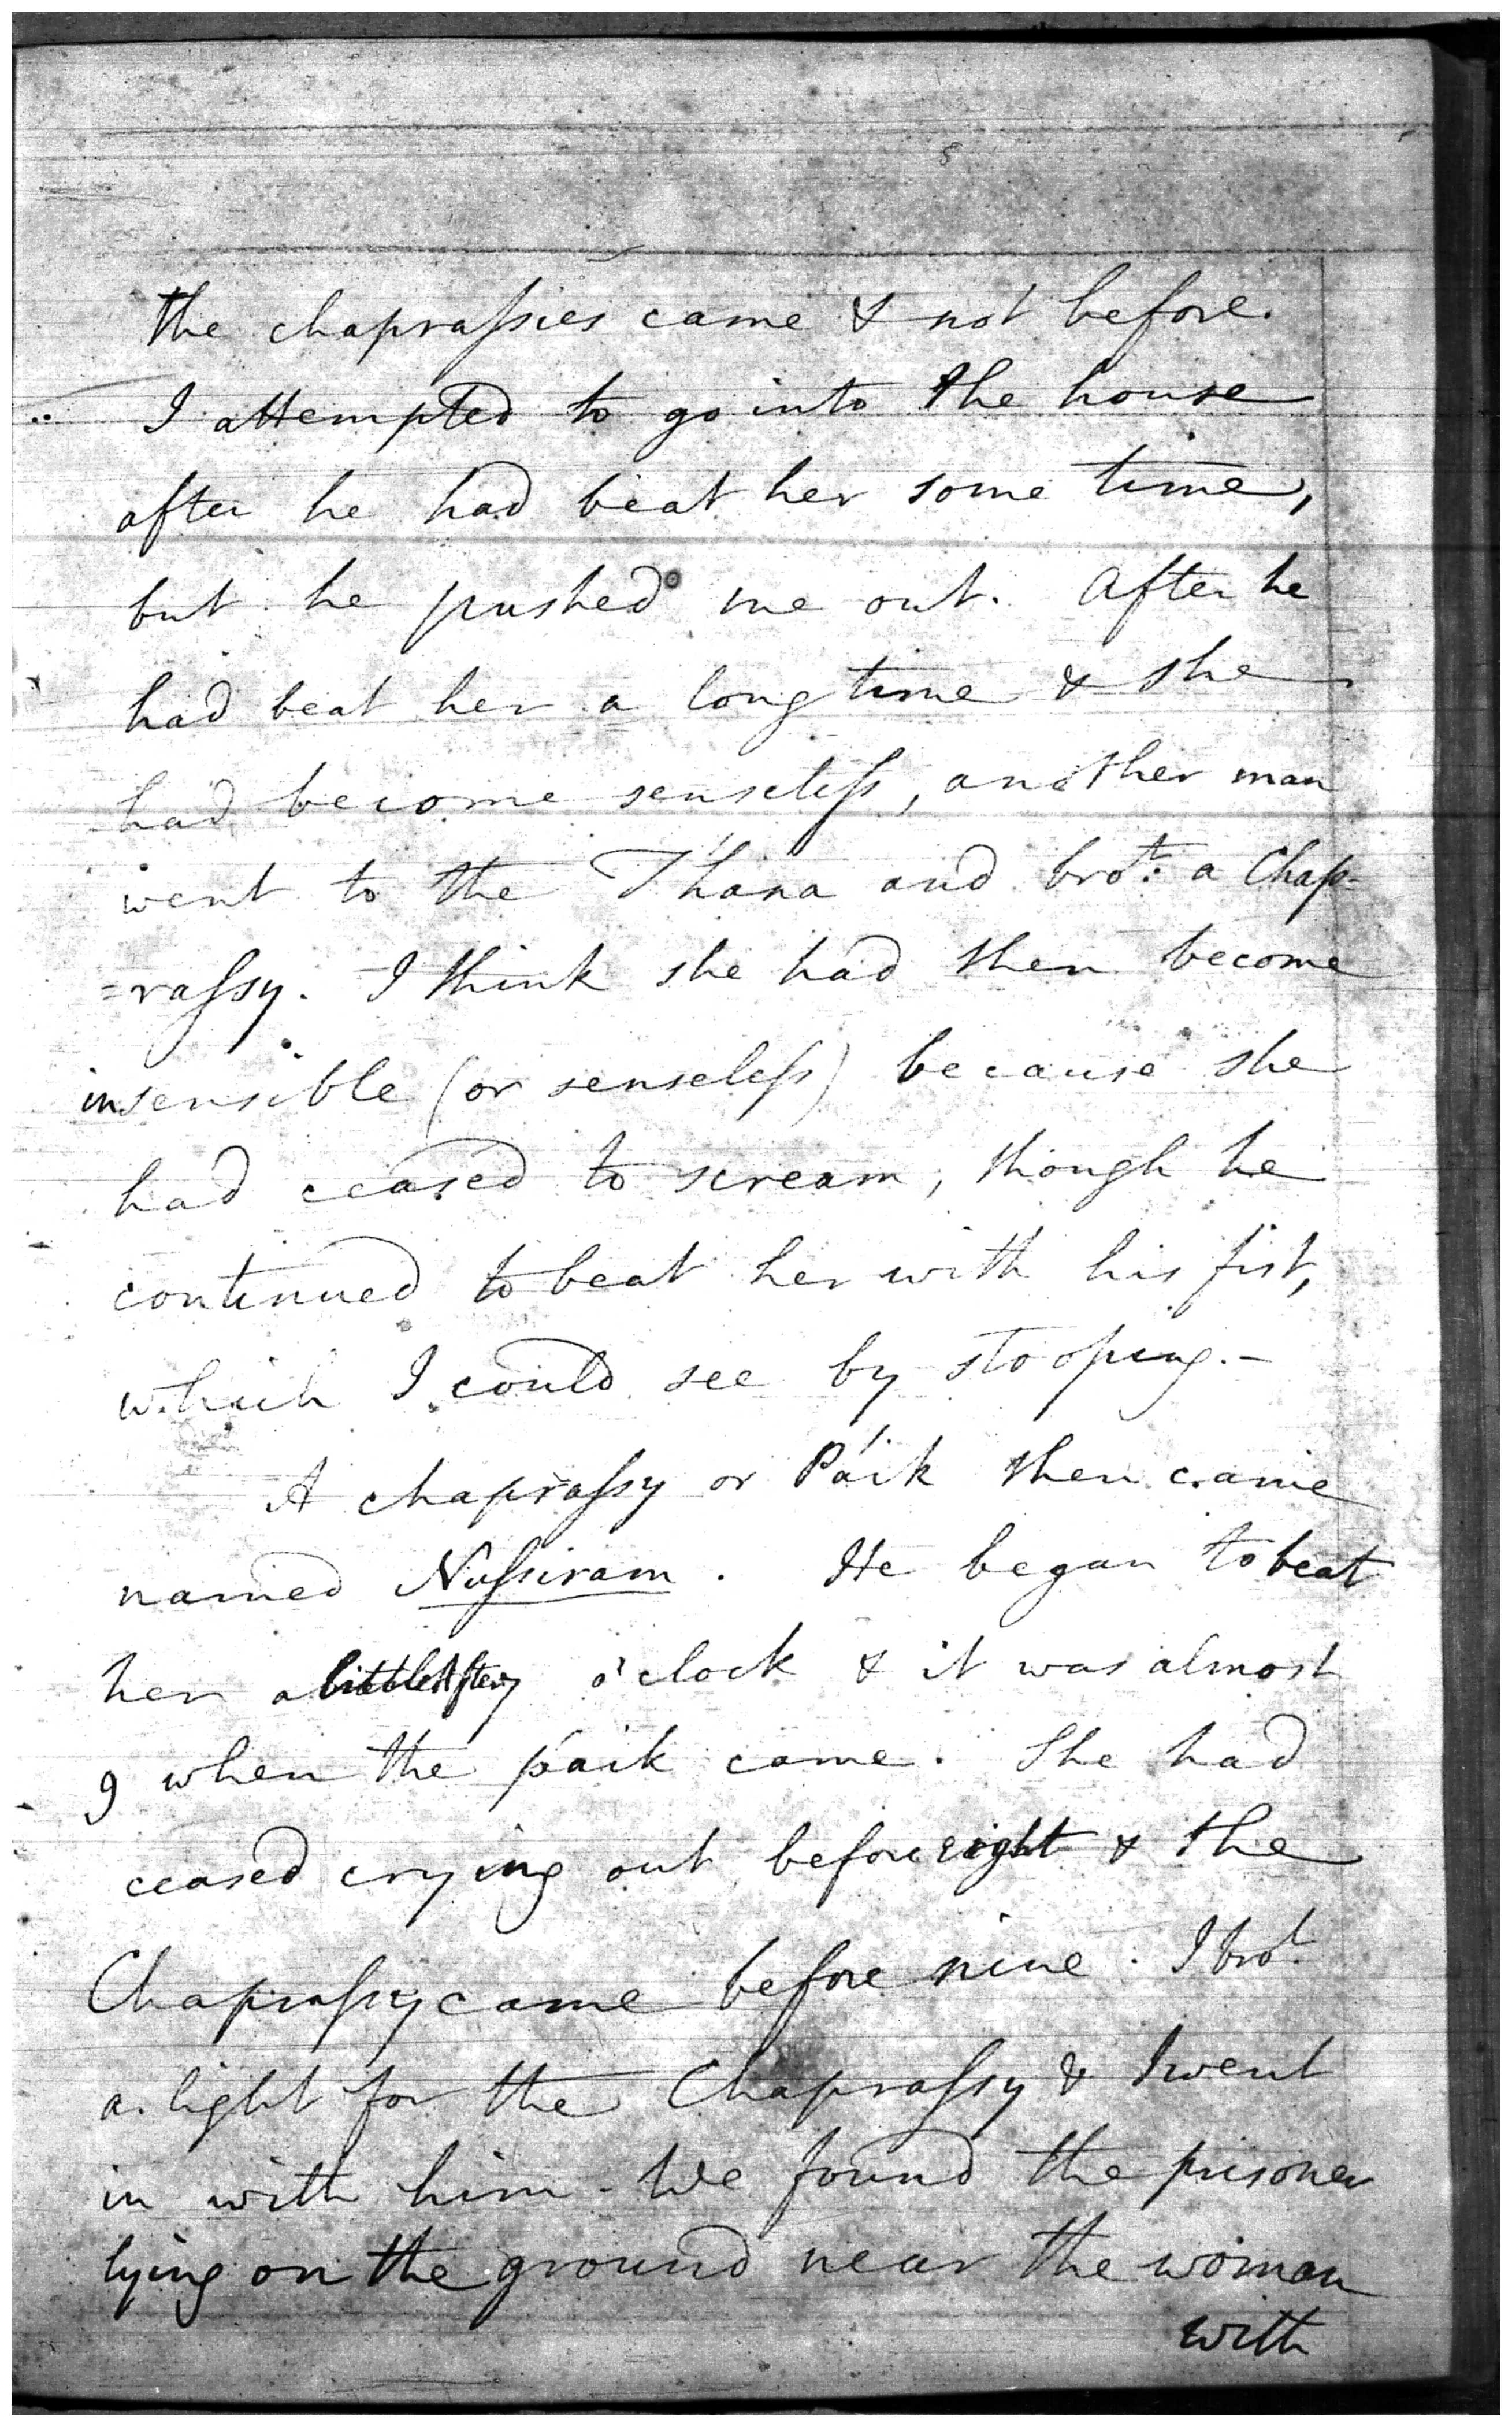 the chapraſsies came & not before.
I attempted to go into the house
after he had beat her some time,
but he pushed me out. After he
had beat her a long time & she
had become senseleſs, another man
went to the Thána and brot. a Chap-
=raſsy. I think she had then become
insensible (or senseleſs) because she
had ceased to scream, though he
continued to beat her with his fist,
which I could see by stooping.-
A chapraſsy or Páik then came
named Nuſsiram. He began to beat
her a little after 7 o'clock & it was almost
9 when the páik came. She had
ceased crying out before eight & the
Chapraſsy came before nine. I brot.
a light for the Chapraſsy & I went
in with him - We found the prisoner
lying on the ground near the woman
with